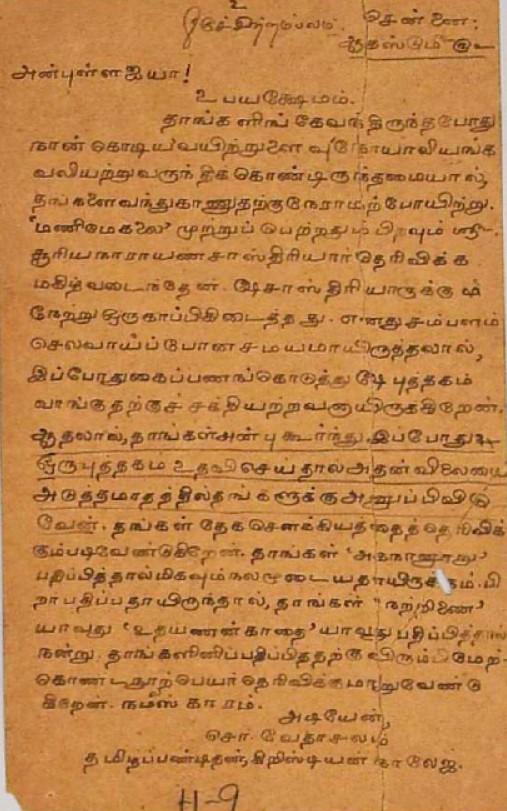 உ
திருச்சிற்றம்பலம். சென்னை:
ஆகஸ்டுமீ
அன்புள்ள ஐயா!
உபயக்ஷேமம்.
தாங்களிங்கேவந்திருந்தபோது
நான் கொடிய வயிற்றுளைவு நோயாலியங்க
வலியற்றுவருந்திக்கொண்டிருந்தமையால்,
தங்களைவந்துகாணுதற்குநேராமற்போயிற்று.
'மணிமேகலை' முற்றுப்பெற்றதும் பிறவும் ஸ்ரீ.
சூரியநாராயணசாஸ்திரியார்தெரிவிக்க
மகிழ்வடைந்தேன். ஷெ சாஸ்திரியாருக்கு ஷெ
நேற்று ஒருகாப்பிகிடைத்தது. எனதுசம்பளம்
செலவாய்ப்போனசமயமாயிருத்தலால்,
இப்போதுகைப்பணங்கொடுத்து ஷெ புத்தகம்
வாங்குதற்குச்சக்தியற்றவனாயிருக்கிறேன்.
ஆதலால், தாங்கள்அன்புகூர்ந்து இப்போது ஷெ
ஒருபுத்தகம் உதவிசெய்தால்அதன்விலையை
அடுத்தமாதத்தில்தங்களுக்குஅனுப்பிவிடு
வேன். தங்கள் தேகசௌக்கியத்தைத்தெரிவிக்
கும்படிவேண்டுகிறேன். தாங்கள் 'அகநானூறு'
பதிப்பித்தால்மிகவும்நலமுடையதாயிருக்கும். பி
றர்பதிப்பதாயிருந்தால், தாங்கள் "நற்றிணை"
யாவது 'உதயணன்காதை'யாவதுபதிப்பித்தால்
நன்று. தாங்களினிப்பதிப்பித்தற்குவிரும்பிமேற்
கொண்டநூற்பெயர்தெரிவிக்குமாறுவேண்டு
கிறேன். நமஸ்காரம்.
அடியேன்,
சொ. வேதாசலம்
தமிழ்ப்பண்டிதன், கிறிஸ்டியன் காலேஜ்.
H-9